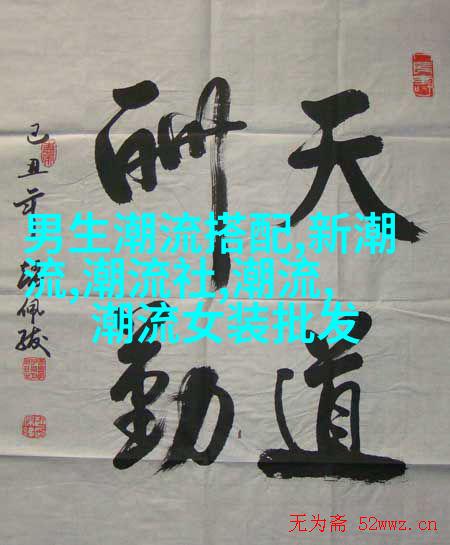 天道
酬勤
己丑
男生潮流搭配,新潮
流,潮流社,潮流,
潮流女装批发
无为斋 52wwz.cn